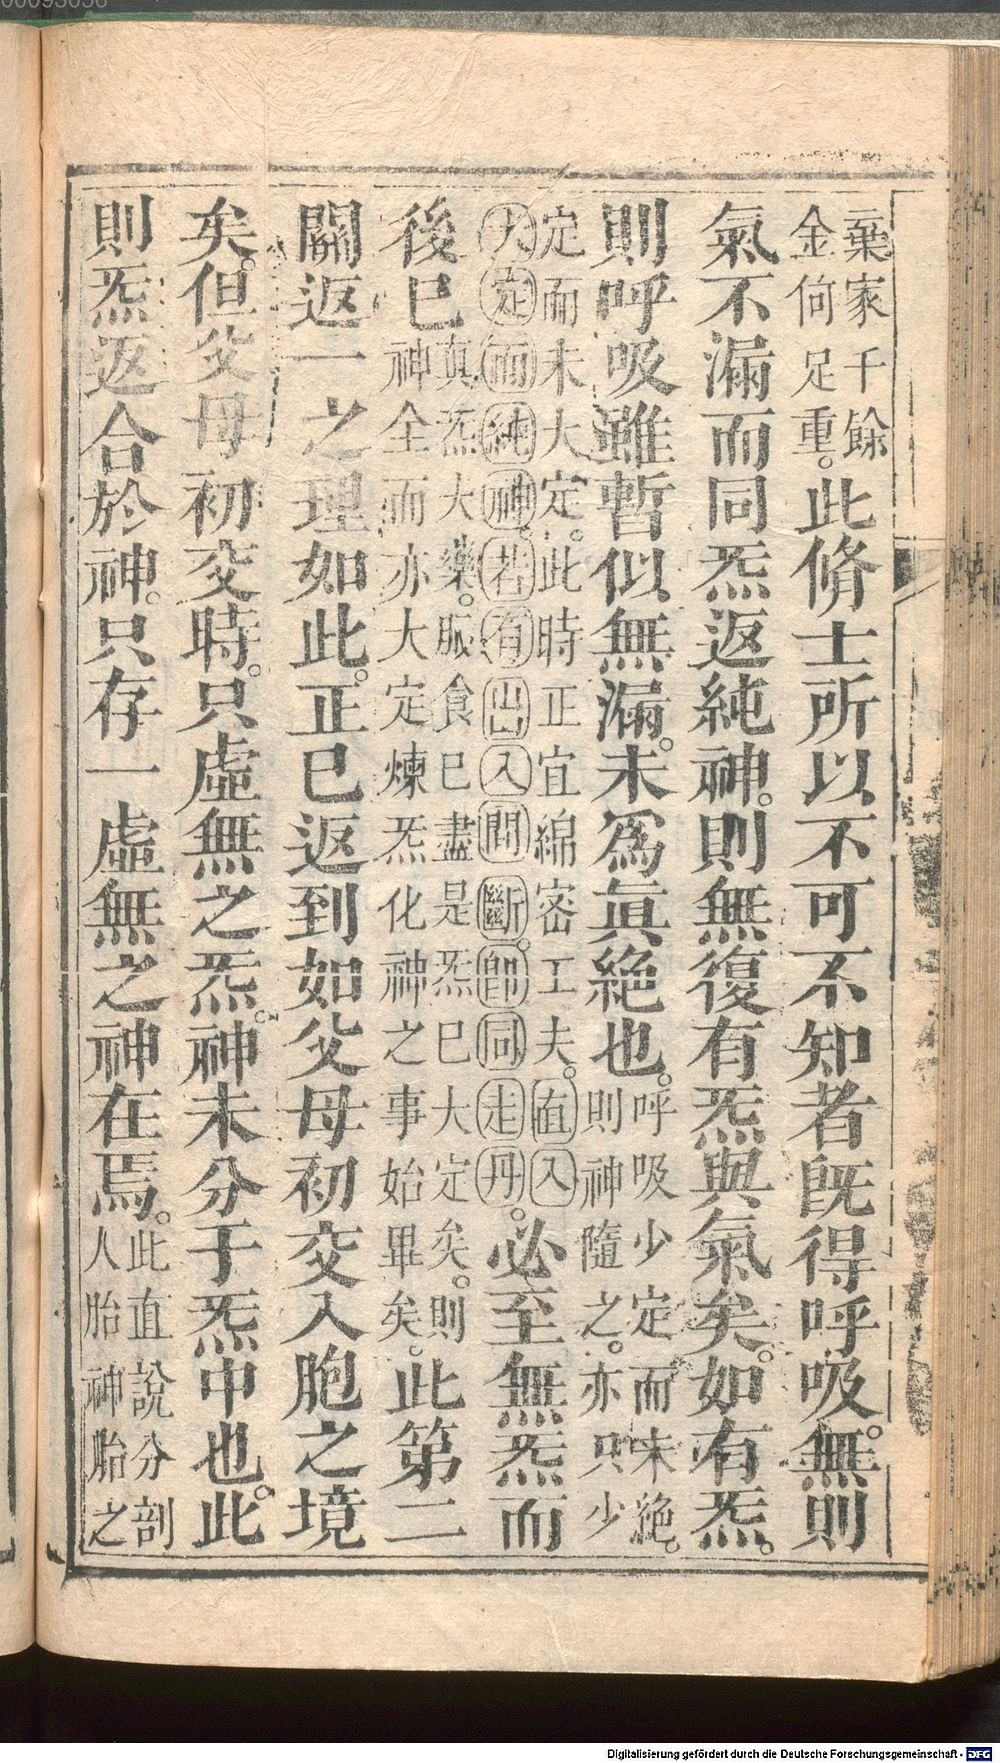 棄家千餘金何足重。此脩士所以不可不知者旣得呼吸。無則
氣不漏而同炁返純神。則無復有炁與氣矣。如有炁。
則呼吸雖暫似無漏。未爲眞絶也。呼吸少定而未絶。則神隨之。亦只少
定而未大定。此時正宜綿密工夫。直入大定而純神若有出入間斷。卽同走丹。必至無炁而
後已眞炁大藥。服食已盡是炁已大定矣。則神全而亦大定煉炁化神之事始畢矣。此第二
關返一之理如此。正已返到如父母初交入胞之境
矣。但父母初交時。只虛無之炁。神未分于炁中也。此
則炁返合於神。只存一虛無之神在焉。此直說分剖人胎神胎之
Digitalisierung gefördert durch die Deutsche Forschungsgemeinschaft - DFG